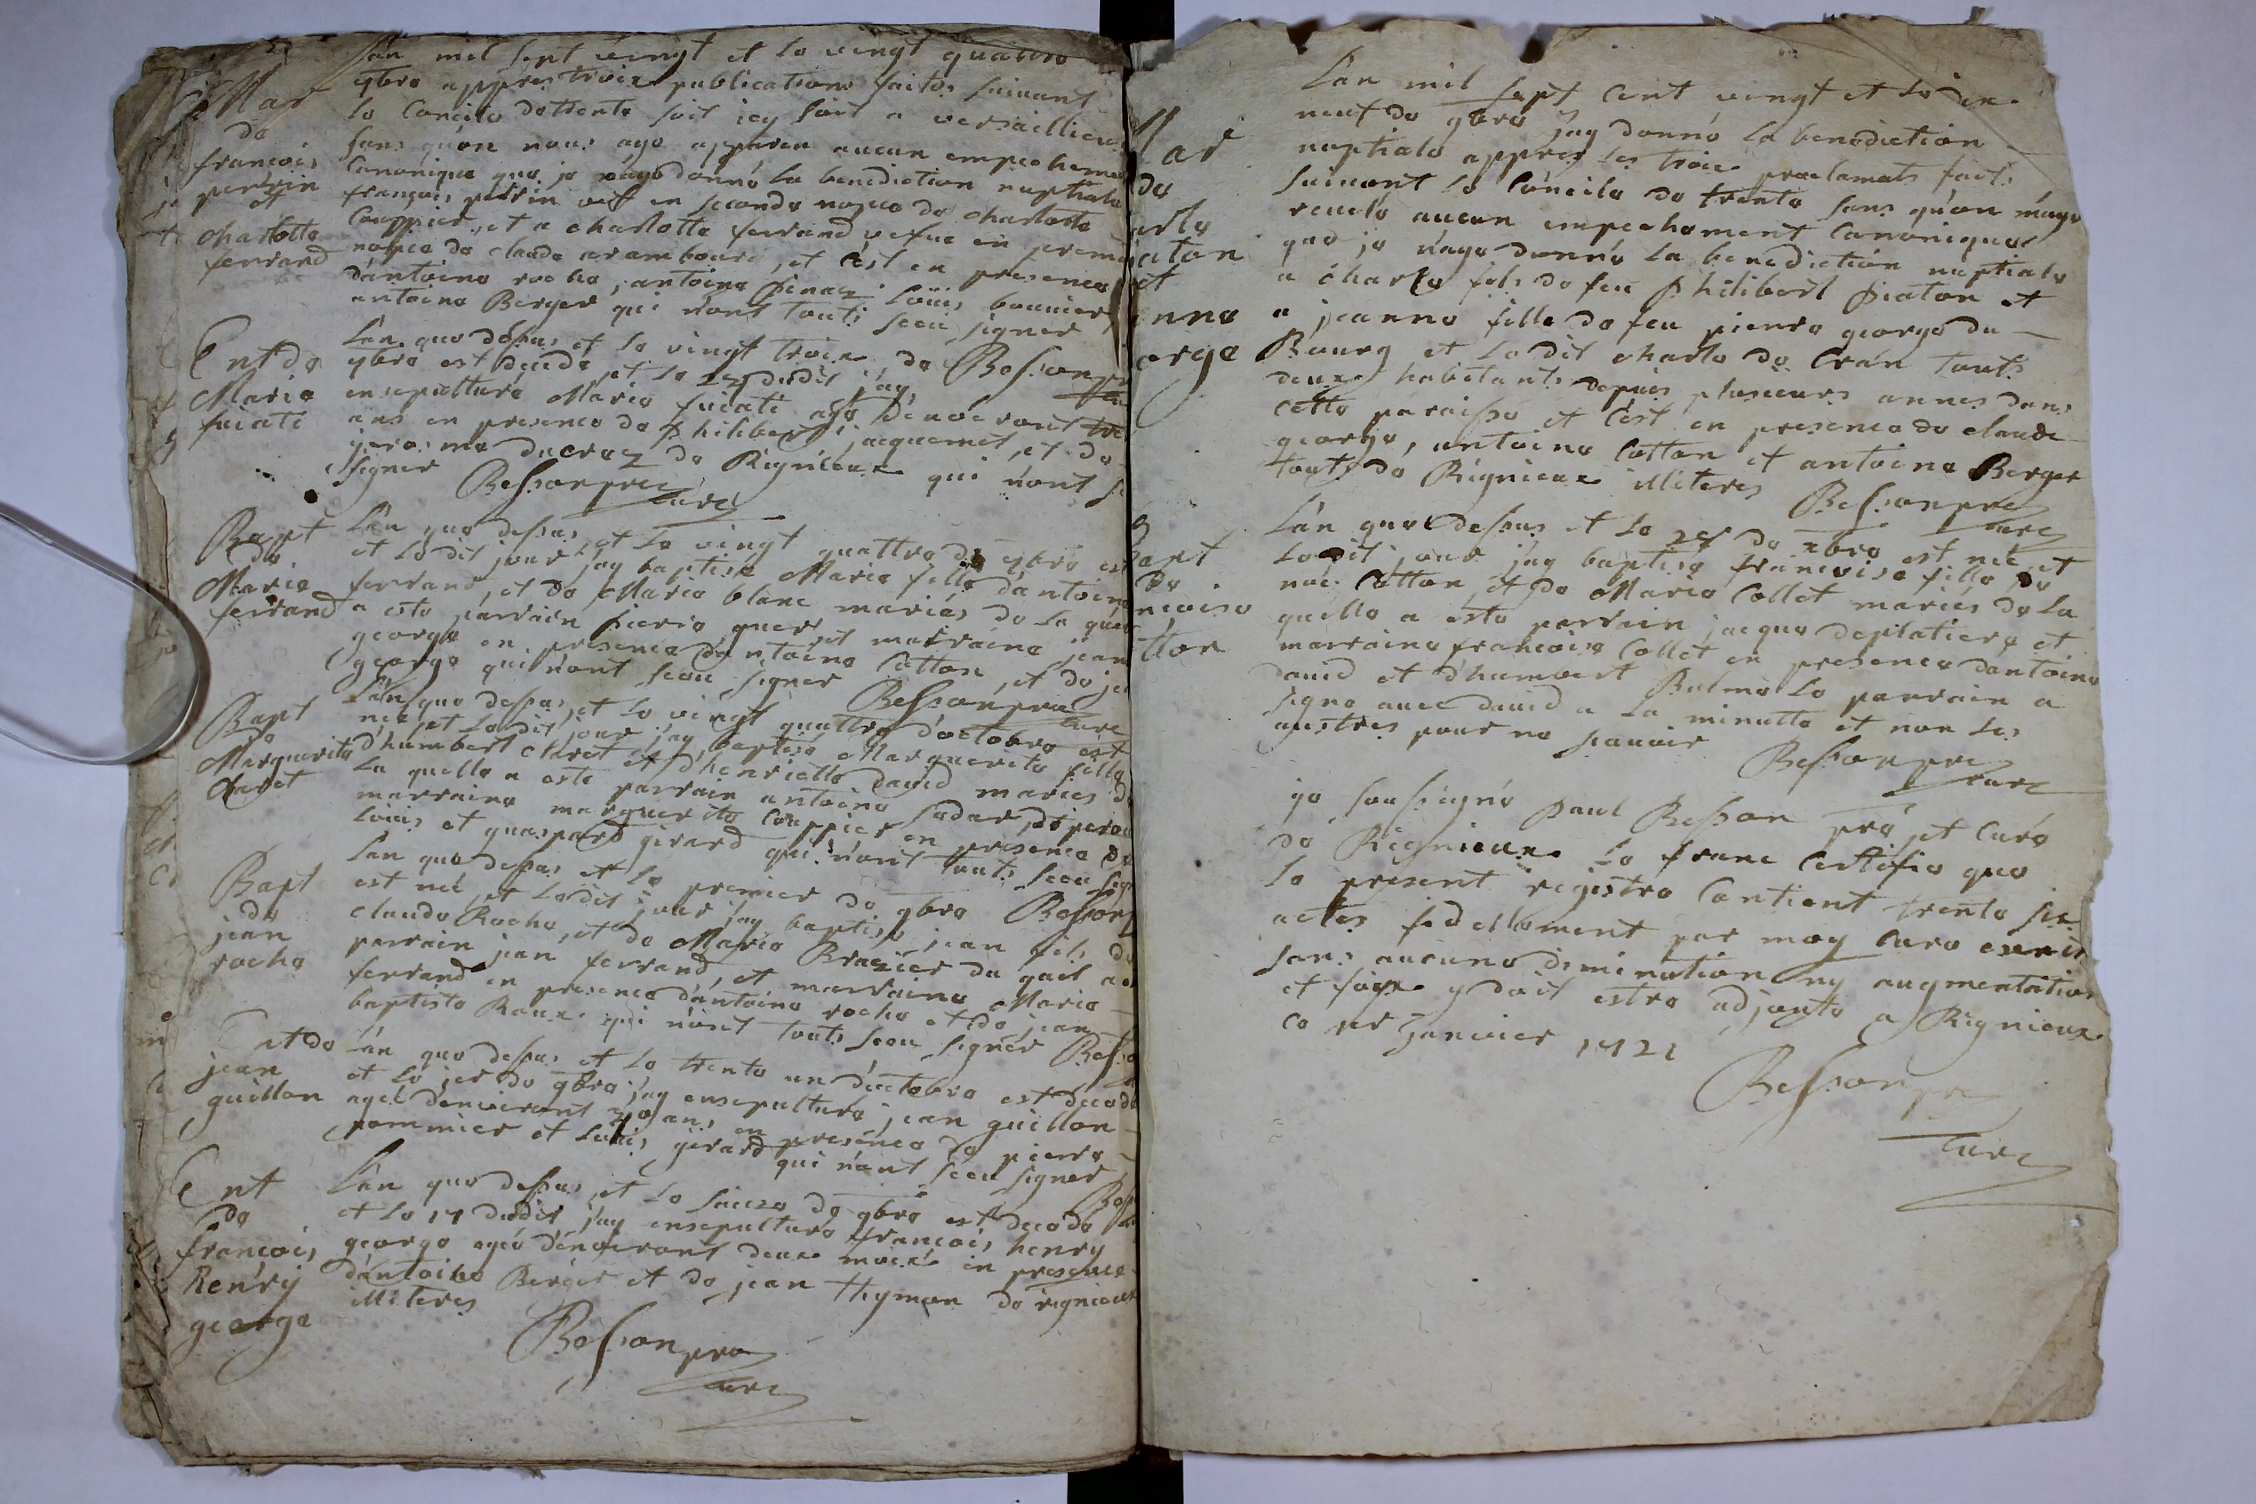 Mar
do
francois
perrin
et
charlotte
ferrand
L'an mil sept vingt et lo vingt quattro
9bro appres troix publications faites suivant
lo Concilo do trento soit icy soit a versaillieu
sans qu'on nous ayo apparu aucun empechement
Canonique quo jo n'ayo donné la benediction nuptialo
françois perrin en secondo nopco do charlotte
Couppier, et a charlotto ferrand vefuo en premi
nopco do claudo arambourd, et c'est en presenco
d'antoino rocho, antoino louis bounier
antoino Berger qui n'ont touts sceu signer
Besson
Ent do
Mario
fuiati
L'an quo dessus et lo vingt troix do
9bro est decedé et lo 24 dudit j'ay
ensepulturo Mario fuiati agé denviront
ans en presenco do philibert jacquemet, et do
jerosmo ducroz do Rignieux qui n'ont
signer Besson pre
curé
Bapt
do
Mario
ferrand
L'an quo dessus, et lo vingt quattro do 9bro est
et lodit jour j'ay baptisé Mario fillo d'antoino
ferrand, et do Mario blanc mariés do la quel
a esto parrain pierro et marraino jean
george en presenco d'antoino Cotton, et do je
george qui n'ont sceu signer Besson pre
curé
Bapt
do
Marguerito
Claret
L'an quo dessus, et lo vingt quattro d'octobro est
néé et lodit jour j'ay baptisé Marguerito fillo
d'humbert Claret et d'henrietto david mariés d
la quello a esté parrain antoino
marraino marguerito Couppier en presenco do
louis et guaspard girard qui n'ont touts sceu sign
Besson
Bapt
do
jean
rocho
L'an quo dessus et lo premier do 9bro
est néé, et lodit jour j'ay baptisé jean fils do
claudo Rocho, et do Mario Brazier du quel a
parrain jean ferrand, et marraino Mario
ferrand en presenco d'antoino rocho et do jean
baptisto Roux qui n'ont touts sceu signer
Ent do
jean
guillon
L'an quo dessus et lo trento un d'octobro est decedé
et lo jer do 9bro j'ay ensepulturo jean guillon
agéé denviront ans en presenco do pierro
pommier et louis girard qui n'ont sceu signer
Ent
do
francois
henry
george
L'an quo dessus et lo saizo do 9bro est decedo
et lo 17 dudit j'ay ensepulturo francois henry
george agéo d'énviront deux moix en presence
d'antoino Berger et do jean thymon do rignieux
illiteres
Besson pre
curé
Mar
do
arlo
iaton
et
anno
orge
L'an mil sept cent vingt et lo dix
neuf do 9bro j'ay donné la benediction
nuptialo appres les troix proclamats faits
suivant lo Concilo do trento sans qu'on m'ayo
revelo aucun empechement Canonique
quo jo n'ayo donné la benediction nuptialo
a charlo fils do feu philibert piaton et
a jeanno fille do feu pierro george du
Bourg et lodit charlo do Crán touts
deux habitants depuis plusieurs annes dans
cetto paraisso et c'est en presenco do claude
george, antoino Cotton et antoino Berger
touts do Rignieux illiteres Besson pre
curé
Bapt
do
ncoiso
tton
L'an quo dessus et lo do xbro est néé et
lodit jour j'ay baptiso francoiso fillo do
Cotton et do Mario Collet mariés do la
quello a esto parrain jacquo deplatiero et
marraino francoiso Collet en presenco dantoino
david et d'humbert Balmo lo parrain a
signo avec david a la minutto et non les
austres pour no scavoir Besson pre
curé
jo soussigno paul Besson pro et Curo
do Rignieux lo franc Certifio quo
lo present registro Contient trento six
actes fidellement par moy Curo escrit
sans aucuno diminution ny augmentation
et foyx y doit estro adjouto a Rignieux
co jer Janvier 1721
Besson pre
curé